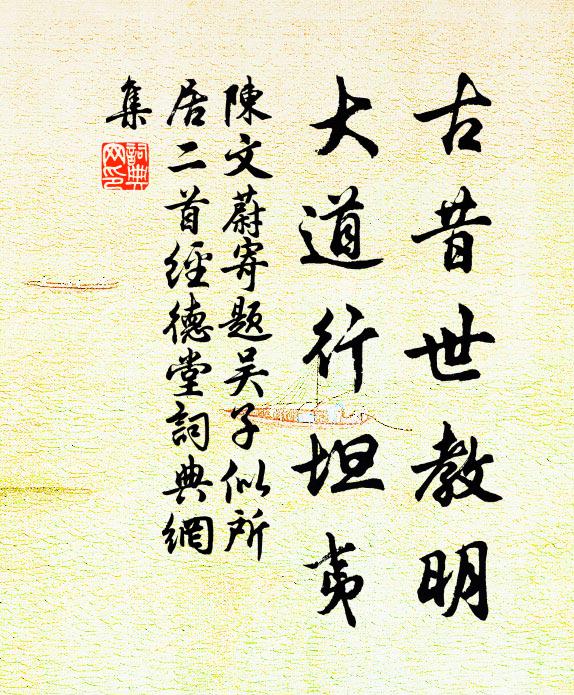 古昔世教明
大道行坦夷
陳文蔚寄題吴子似所
居二首經德堂詞典網
集
詞典
网印